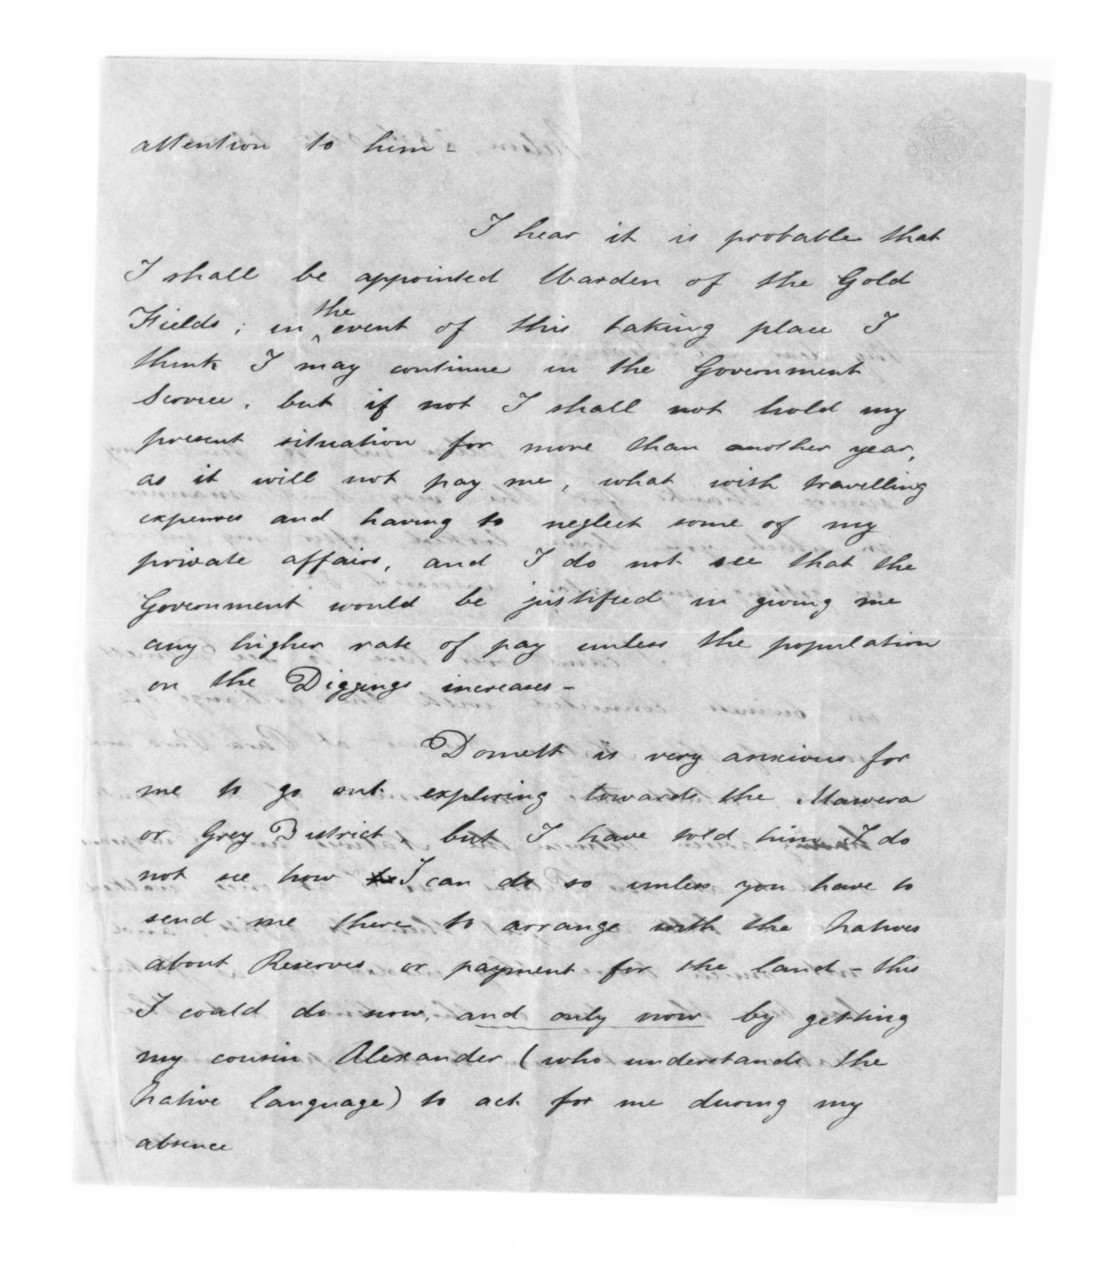 attention to him -
I hear it is probable that
I shall be appointed Warden of the Gold
Fields; in the event of this taking place I
think I may continue in the Government
Service, but if not I shall not hold my
present situation for more than another year,
as it will not pay me, what with travelling
expenses and having to neglect some of my
private affairs, and I do not see that the
Government would be justified in giving me
any higher rate of pay unless the population
on the Diggings increases -
Domett is very anxious for
me to go out exploring towards the Mawera
or Grey District, but I have told him I do
not see how I can do so unless you have to
send me there to arrange with the Natives
about Reserves or payment for the land - this
I could do now, and only now by getting
my cousin Alexander (who understands the
Native language) to act for me during my
absence